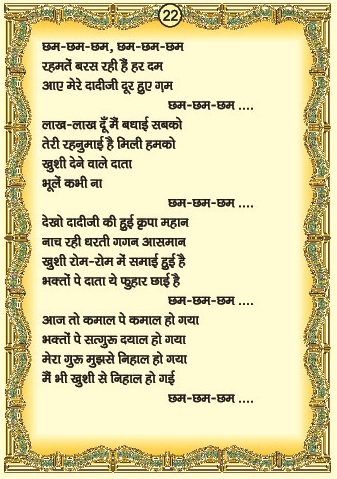 22
छम-छम-छम, छम-छम-छम
रहमतें बरस रही हैं हर दम
आए मेरे दादीजी दूर हुए ग़म
छम-छम-छम ....
लाख-लाख दूँ मैं बधाई सबको
तेरी रहनुमाई है मिली हमको
खुशी देने वाले दाता
भूलें कभी ना
छम-छम-छम ....
देखो दादीजी की हुई कृपा महान
नाच रही धरती गगन आसमान
खुशी रोम-रोम में समाई हुई है
भक्तों पे दाता ये फुहार छाई है
छम-छम-छम ....
आज तो कमाल पे कमाल हो गया
भक्तों पे सत्गुरू दयाल हो गया
मेरा गुरू मुझसे निहाल हो गया
मैं भी खुशी से निहाल हो गई
छम-छम-छम ....